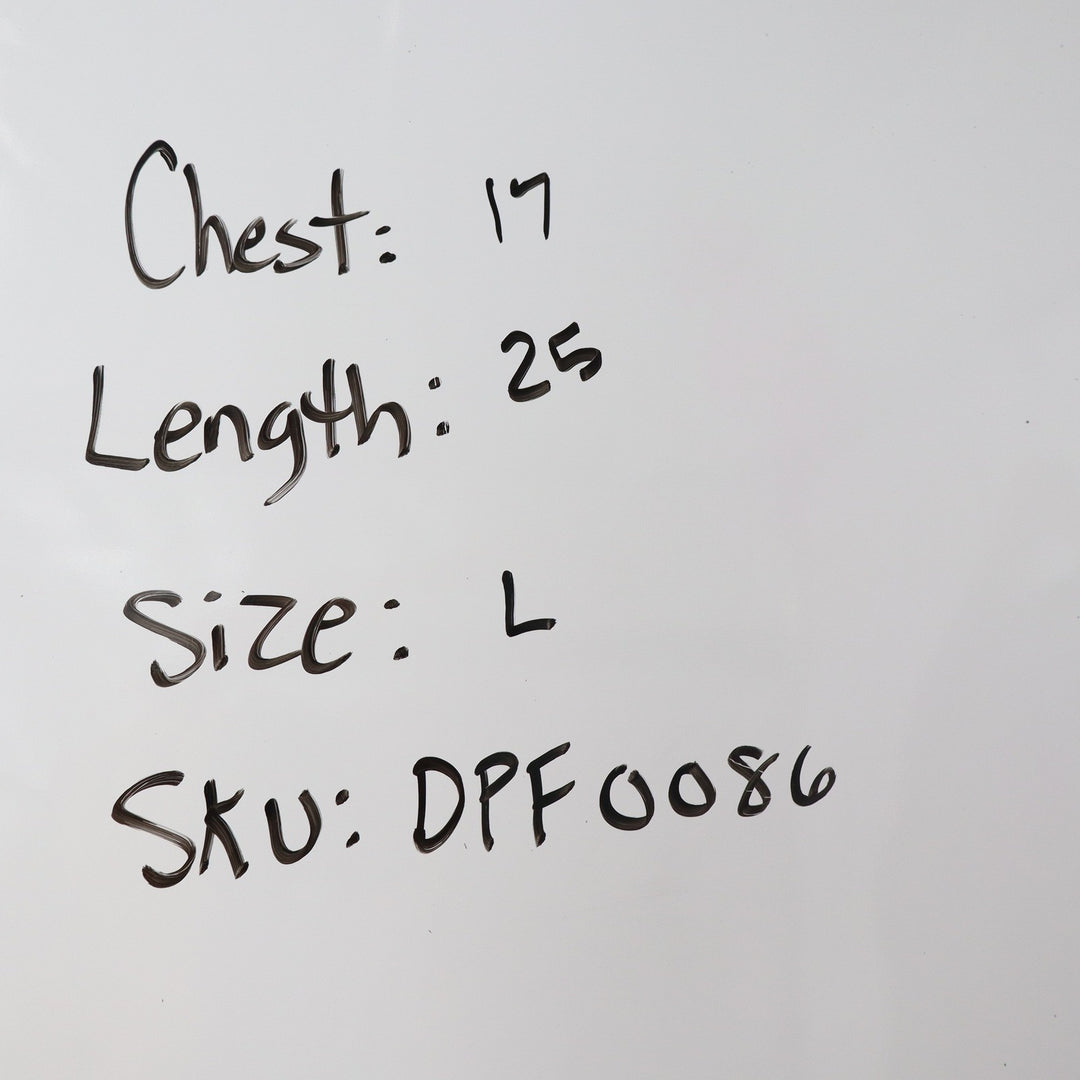 Chest: 17
Length: 25
Size: L
Sku: DPF0086